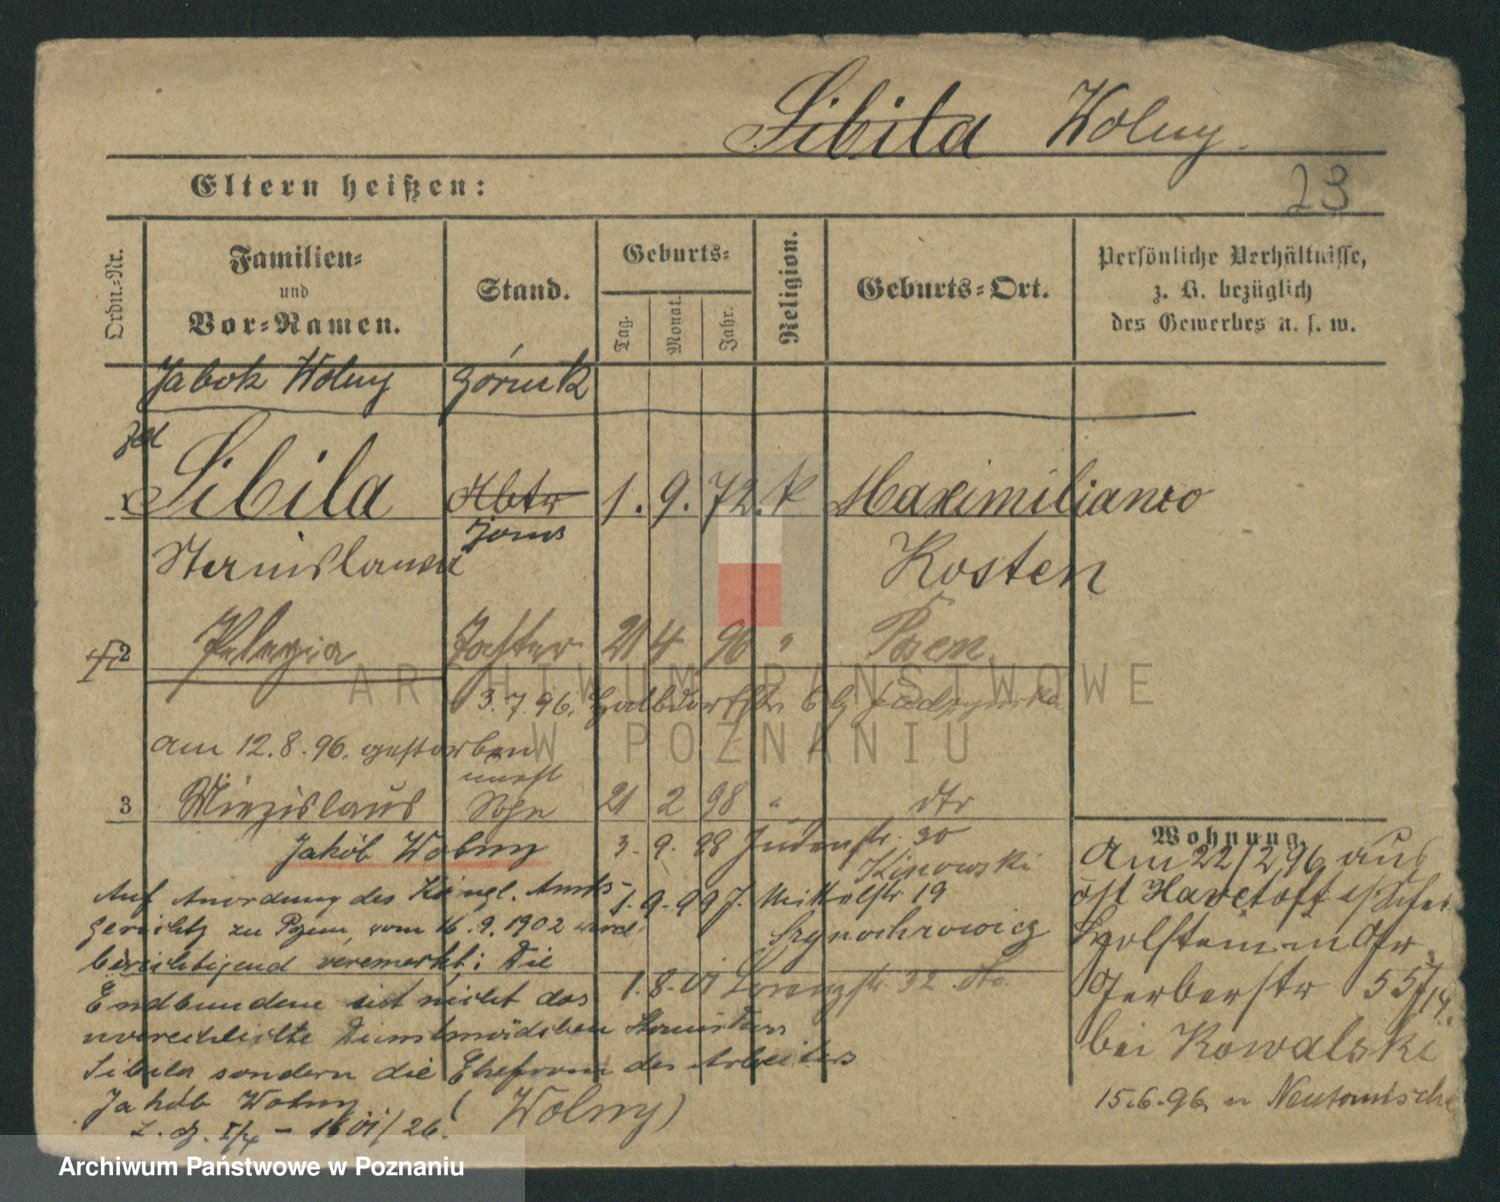 Sibila Wolny.
Eltern heißen:
23
Ordn.-Nr.
Familien-
und
Vor-Namen.
Stand.
Geburts-
Tag.
Monat.
Jahr.
Religion.
Geburts-Ort.
Persönliche Verhältnisse,
z. B. bezüglich
des Gewerbes u. s. w.
Jabok Wolny górnik
1 Sibila 1. 9. 72. k Maximilianwo
Stanislawa Kosten
2 Pelagia Tochter 21 4 96 " Posen
3.7.96.
am 12.8.96. gestorben
unehl
3 Miezislaus Sohn 21 2 98 " dto
Jakób Wolny 3. 9. 98 Judenstr. 30
Kinowski
Wohnung
Am 22/2 96 aus
Auf Anordnung des Königl. Amts- 1.9.99 Mittelstr 19
gerichts zu Posen, vom 16.9.1902 wird
berichtigend vermerkt: Die
Entbundene ist nicht das 1.8.01 Lorenzstr. 32 dto.
unverehelichte Dienstmädchen Stanislawa
Sibila sondern die Ehefrau des Arbeiters
Jakób Wolny (Wolny)
Holstein in
Gerberstr 55
bei Kowalski
15.6.96 n Neutomischel
ARCHIWUM PAŃSTWOWE
W POZNANIU
Archiwum Państwowe w Poznaniu